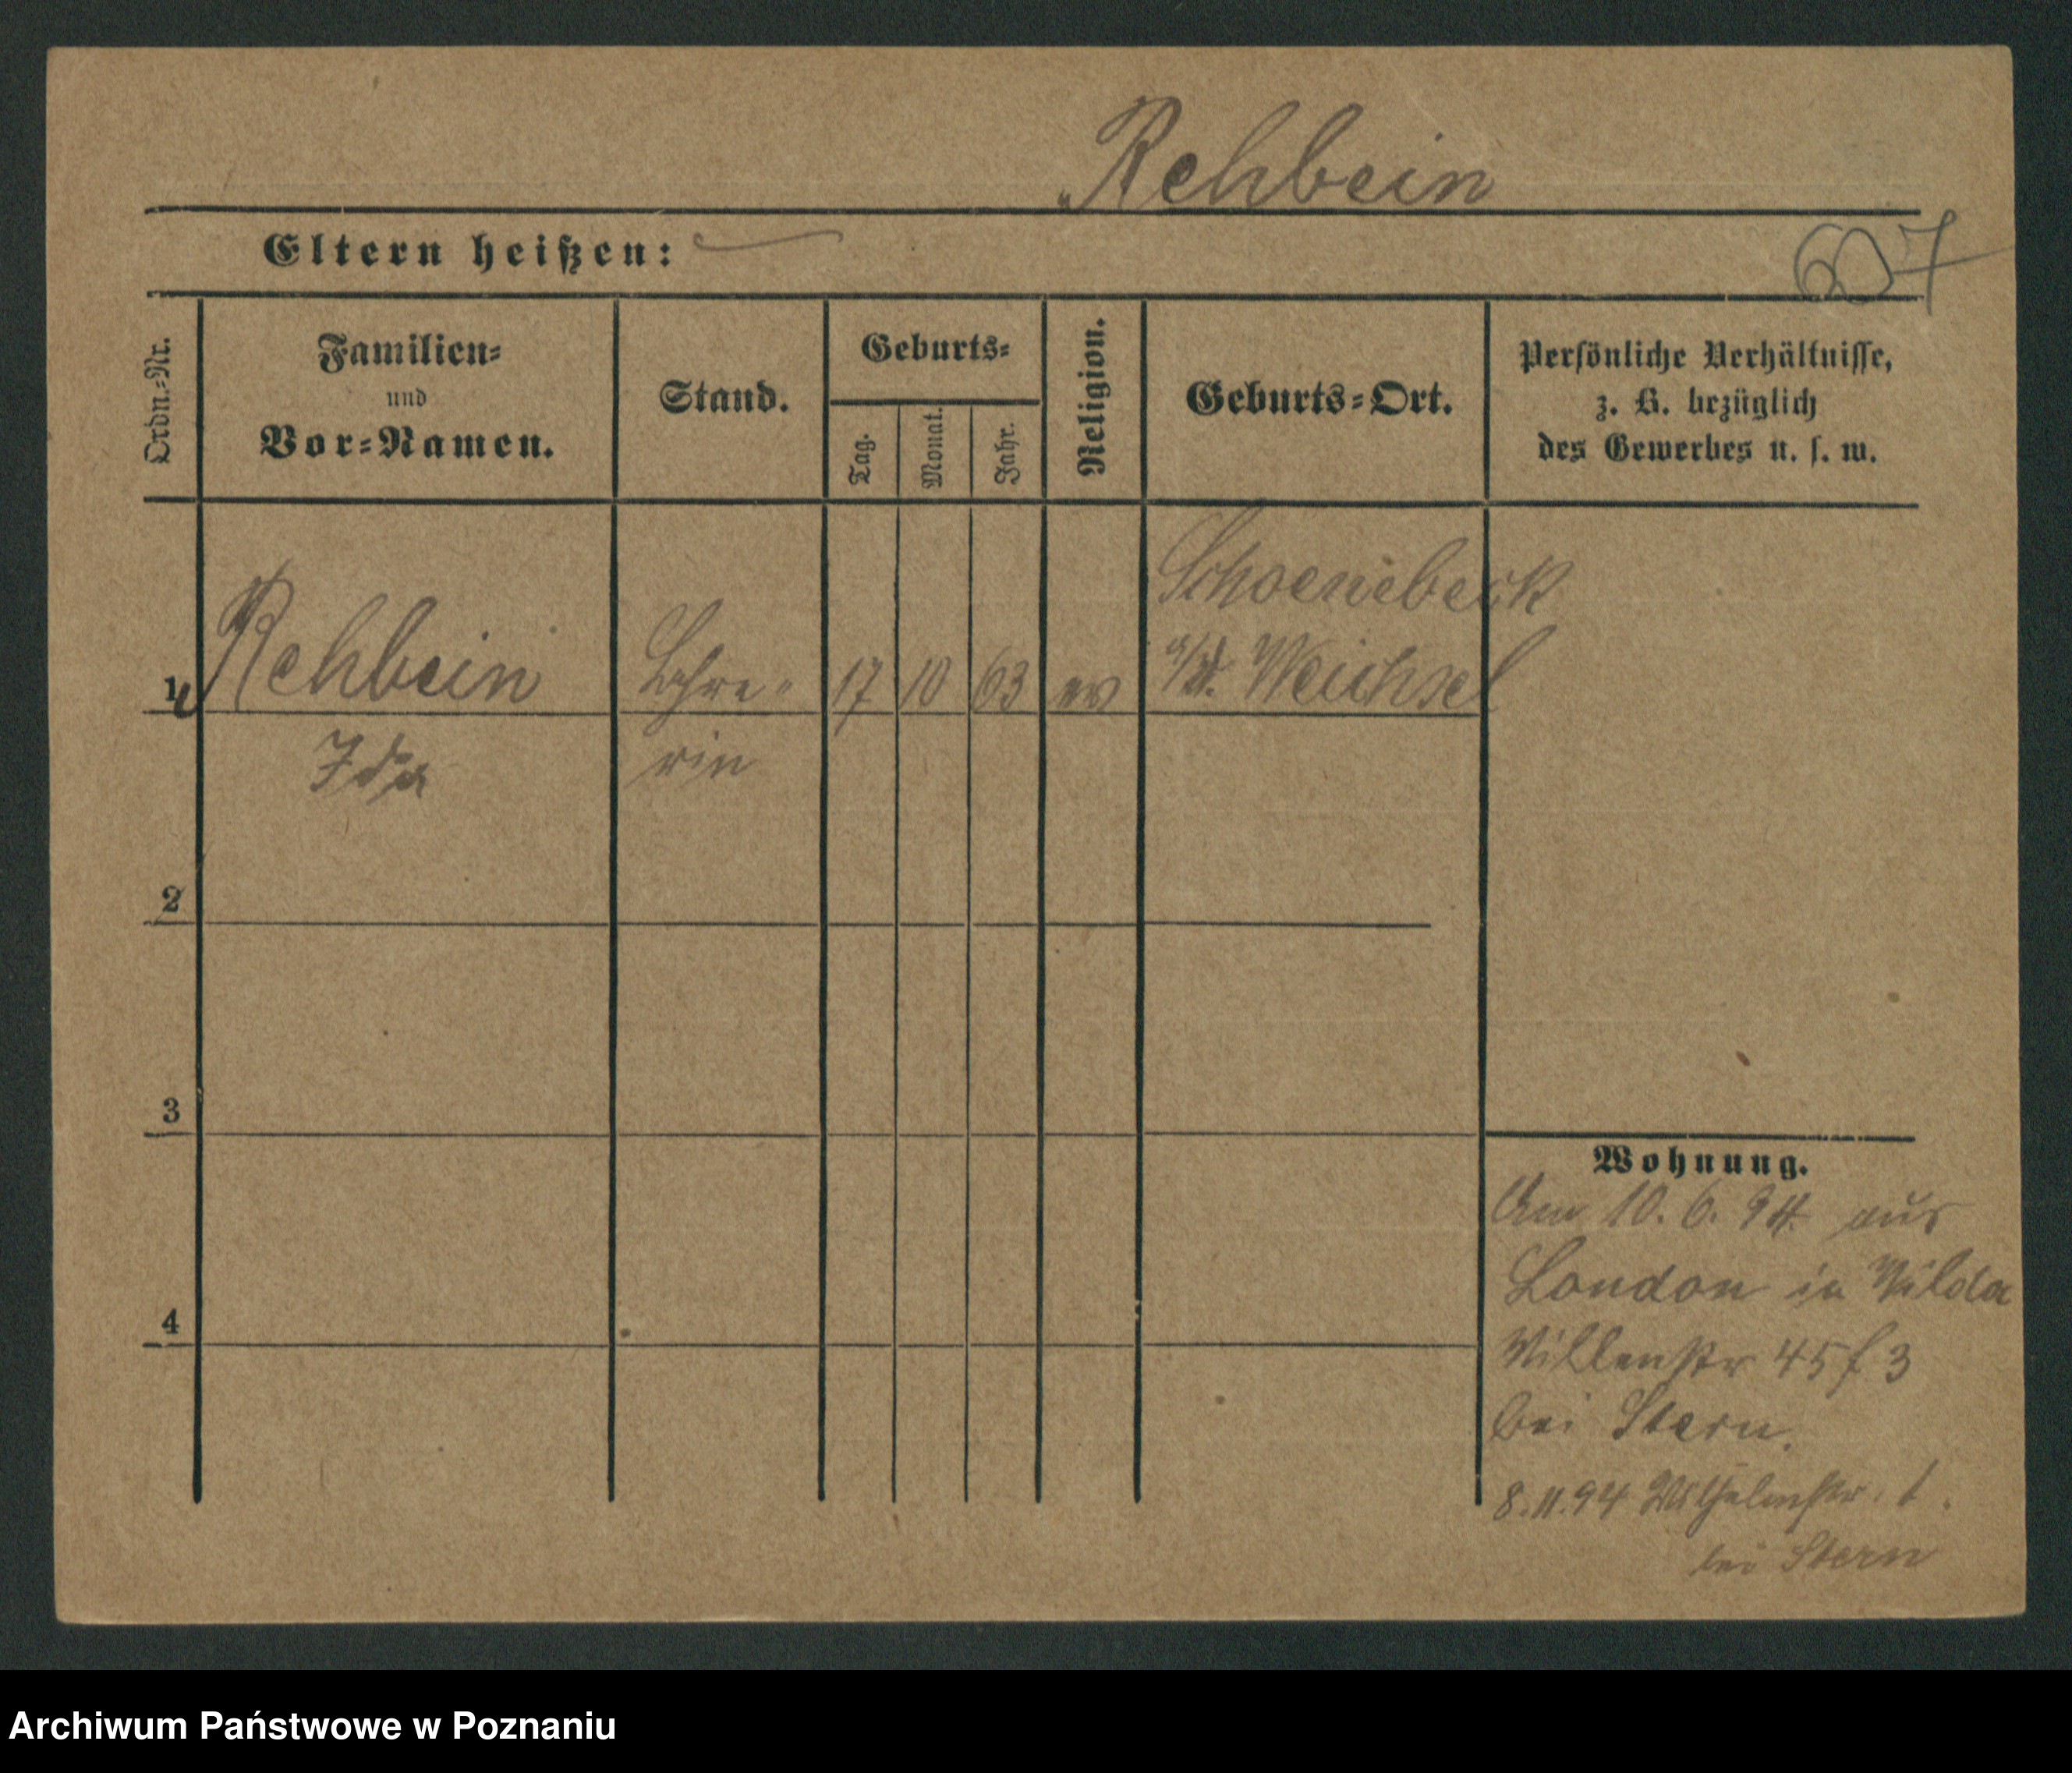 Rehbein
Eltern heißen:
607
Ordn.=Nr.
Familien=
und
Vor=Namen.
Stand.
Geburts=
Tag.
Monat.
Jahr.
Religion.
Geburts=Ort.
Persönliche Verhältnisse,
z. B. bezüglich
des Gewerbes u. s. w.
1 Rehbein Lehre= 17 10 63 ev Schoenebeck
a/d. Weichsel
Ida rin
2
3
4
Wohnung.
Am 10. 6. 94 aus
London in Wilda
Villenstr 45 f 3
bei Stern.
8.11.94 Wilhelmstr. 1.
bei Stern
Archiwum Państwowe w Poznaniu